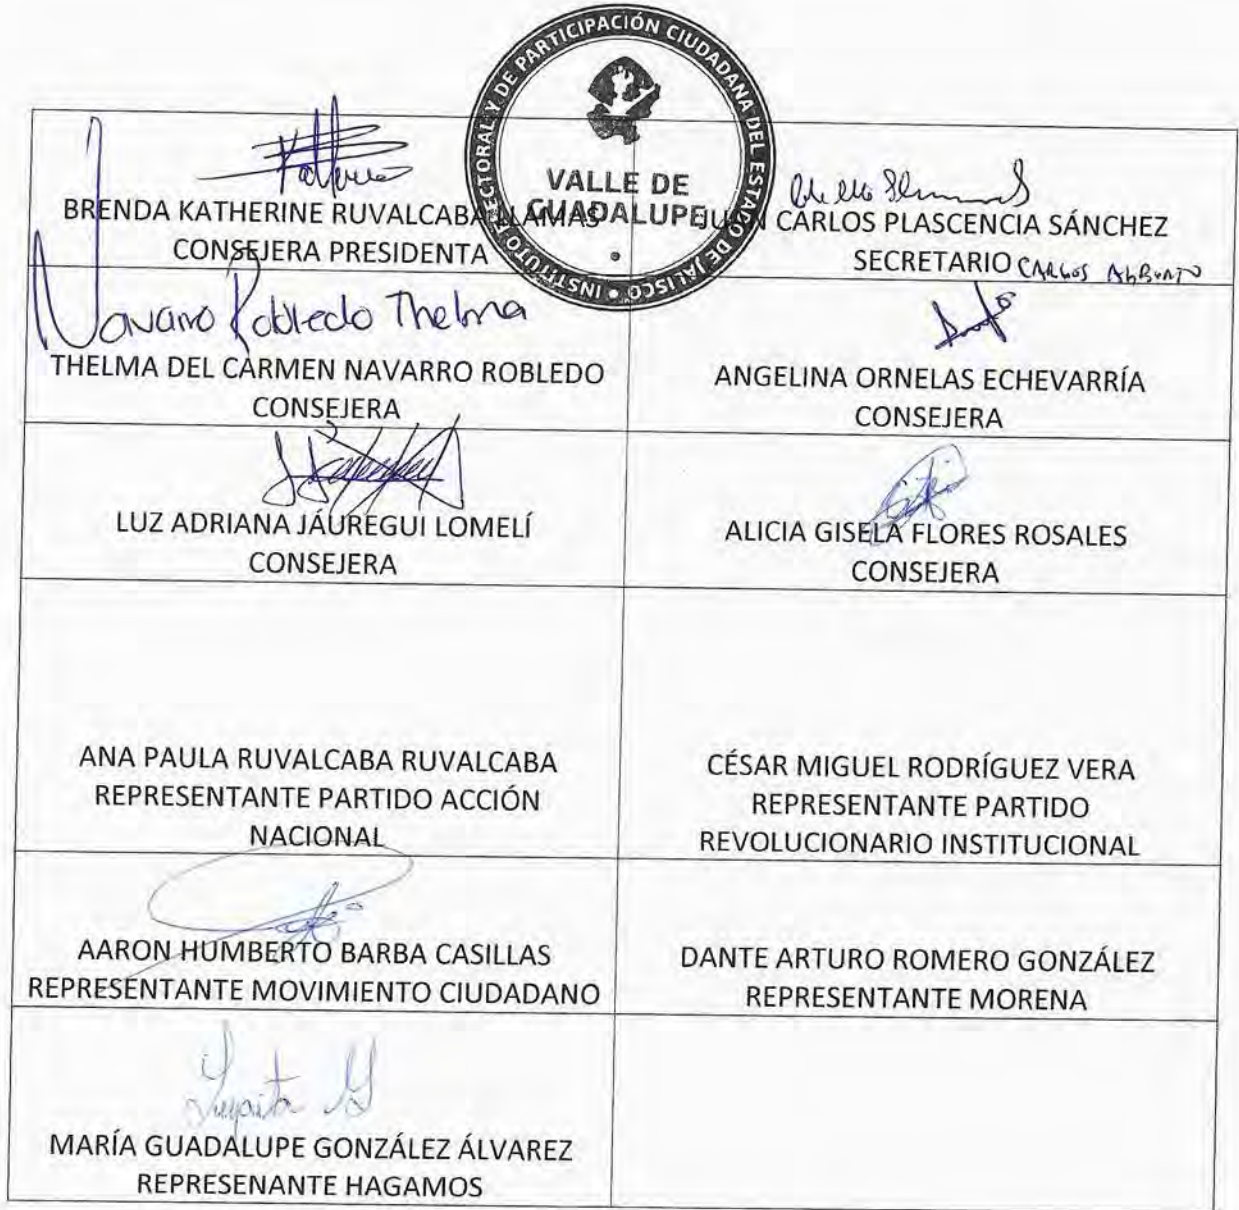 INSTITUTO ELECTORAL Y DE PARTICIPACIÓN CIUDADANA DEL ESTADO DE JALISCO
VALLE DE
GUADALUPE
BRENDA KATHERINE RUVALCABA LLAMAS
CONSEJERA PRESIDENTA
JUAN CARLOS PLASCENCIA SÁNCHEZ
SECRETARIO CARLOS ALBERTO
Navarro Robledo Thelma
THELMA DEL CARMEN NAVARRO ROBLEDO
CONSEJERA
ANGELINA ORNELAS ECHEVARRÍA
CONSEJERA
LUZ ADRIANA JÁUREGUI LOMELÍ
CONSEJERA
ALICIA GISELA FLORES ROSALES
CONSEJERA
ANA PAULA RUVALCABA RUVALCABA
REPRESENTANTE PARTIDO ACCIÓN
NACIONAL
CÉSAR MIGUEL RODRÍGUEZ VERA
REPRESENTANTE PARTIDO
REVOLUCIONARIO INSTITUCIONAL
AARON HUMBERTO BARBA CASILLAS
REPRESENTANTE MOVIMIENTO CIUDADANO
DANTE ARTURO ROMERO GONZÁLEZ
REPRESENTANTE MORENA
Lupita G
MARÍA GUADALUPE GONZÁLEZ ÁLVAREZ
REPRESENANTE HAGAMOS